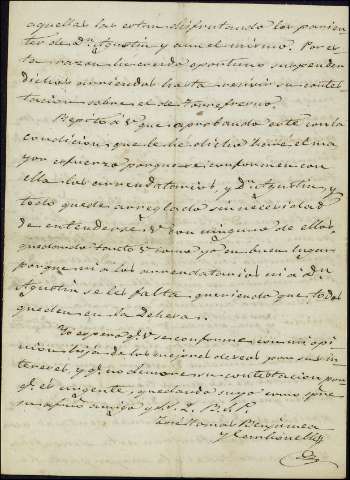 aquellas las estan disfrutando los parien-
tes de Dn. Agustin y aun el mismo. Por es-
ta razon he creido oportuno suspender
dichos arriendos hasta recivir su contes-
tacion sobre el de
Repito á V. que aprobando este con la
condicion que le he dicho haré el ma-
yor esfuerzo porque se conformen con
ella los arrendatarios, y Dn. Agustin, y
todo quede arreglado sin necesidad
de entenderse V. con ninguno de ellos,
quedando tanto V. como yo en buen lugar
porque ni a los arrendatarios ni a Dn.
Agustin se les falta queriendo que todos
queden en la Dehesa.
Yo espero q. V. se conforme con mi opi-
nion hija de los mejores deseos por sus in-
tereses, y q. no demore su contestacion por
q. es urgente, quedando suyo como siempre
su afmo. amigo y S. S. Q. B. S. M.
José Tomas Benjumea
y